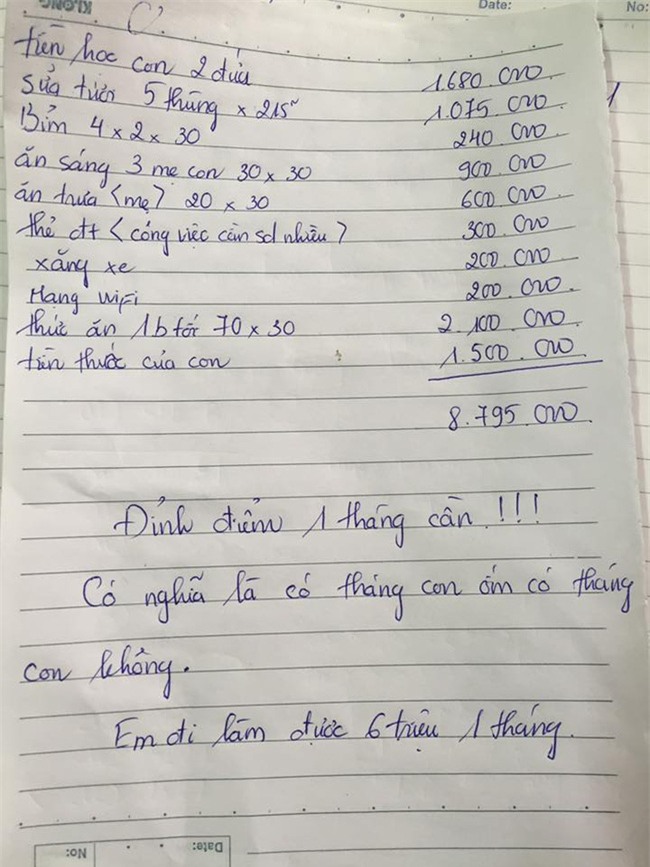 KLONG
Date:
No:
tiền học con 2 đứa 1.680.000
sữa tươi 5 thùng x 215ⁿ 1.075.000
Bỉm 4 x 2 x 30 240.000
ăn sáng 3 mẹ con 30 x 30 900.000
ăn trưa <mẹ> 20 x 30 600.000
thẻ đt < công việc cần sd nhiều > 300.000
xăng xe 200.000
Mạng wifi 200.000
thức ăn 1b tối 70 x 30 2.100.000
tiền thuốc của con 1.500.000
8.795.000
Đỉnh điểm 1 tháng cần !!!
Có nghĩa là có tháng con ốm có tháng
con không.
Em đi làm được 6 triệu 1 tháng.
No:
Date: